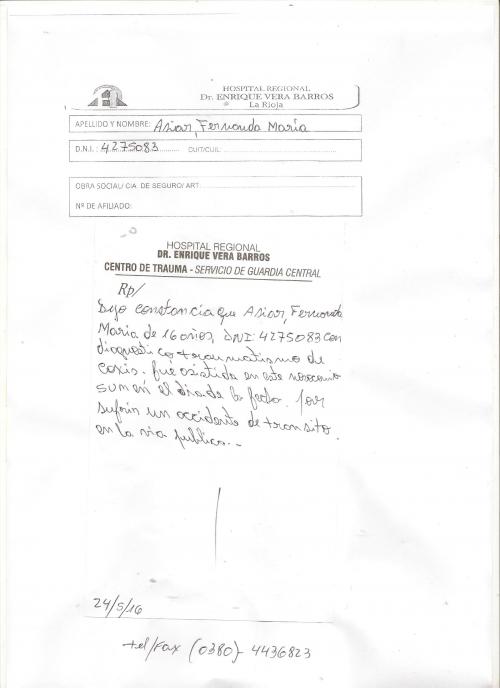 HOSPITAL REGIONAL
Dr. ENRIQUE VERA BARROS
La Rioja
APELLIDO Y NOMBRE: Asiar, Fernanda María
D.N.I.: 4275083 CUIT/CUIL:
OBRA SOCIAL/ CIA. DE SEGURO/ ART:
Nº DE AFILIADO:
HOSPITAL REGIONAL
DR. ENRIQUE VERA BARROS
CENTRO DE TRAUMA - SERVICIO DE GUARDIA CENTRAL
Rp/
Dejo constancia que Asiar, Fernanda
María de 16 años, DNI: 4275083 con
diagnostico traumatismo de
coxis. fué asistida en este nosocomio
en el día de la fecha. Por
sufrir un accidente de transito
en la via publica..
24/5/16
tel/Fax (0380)- 4436823